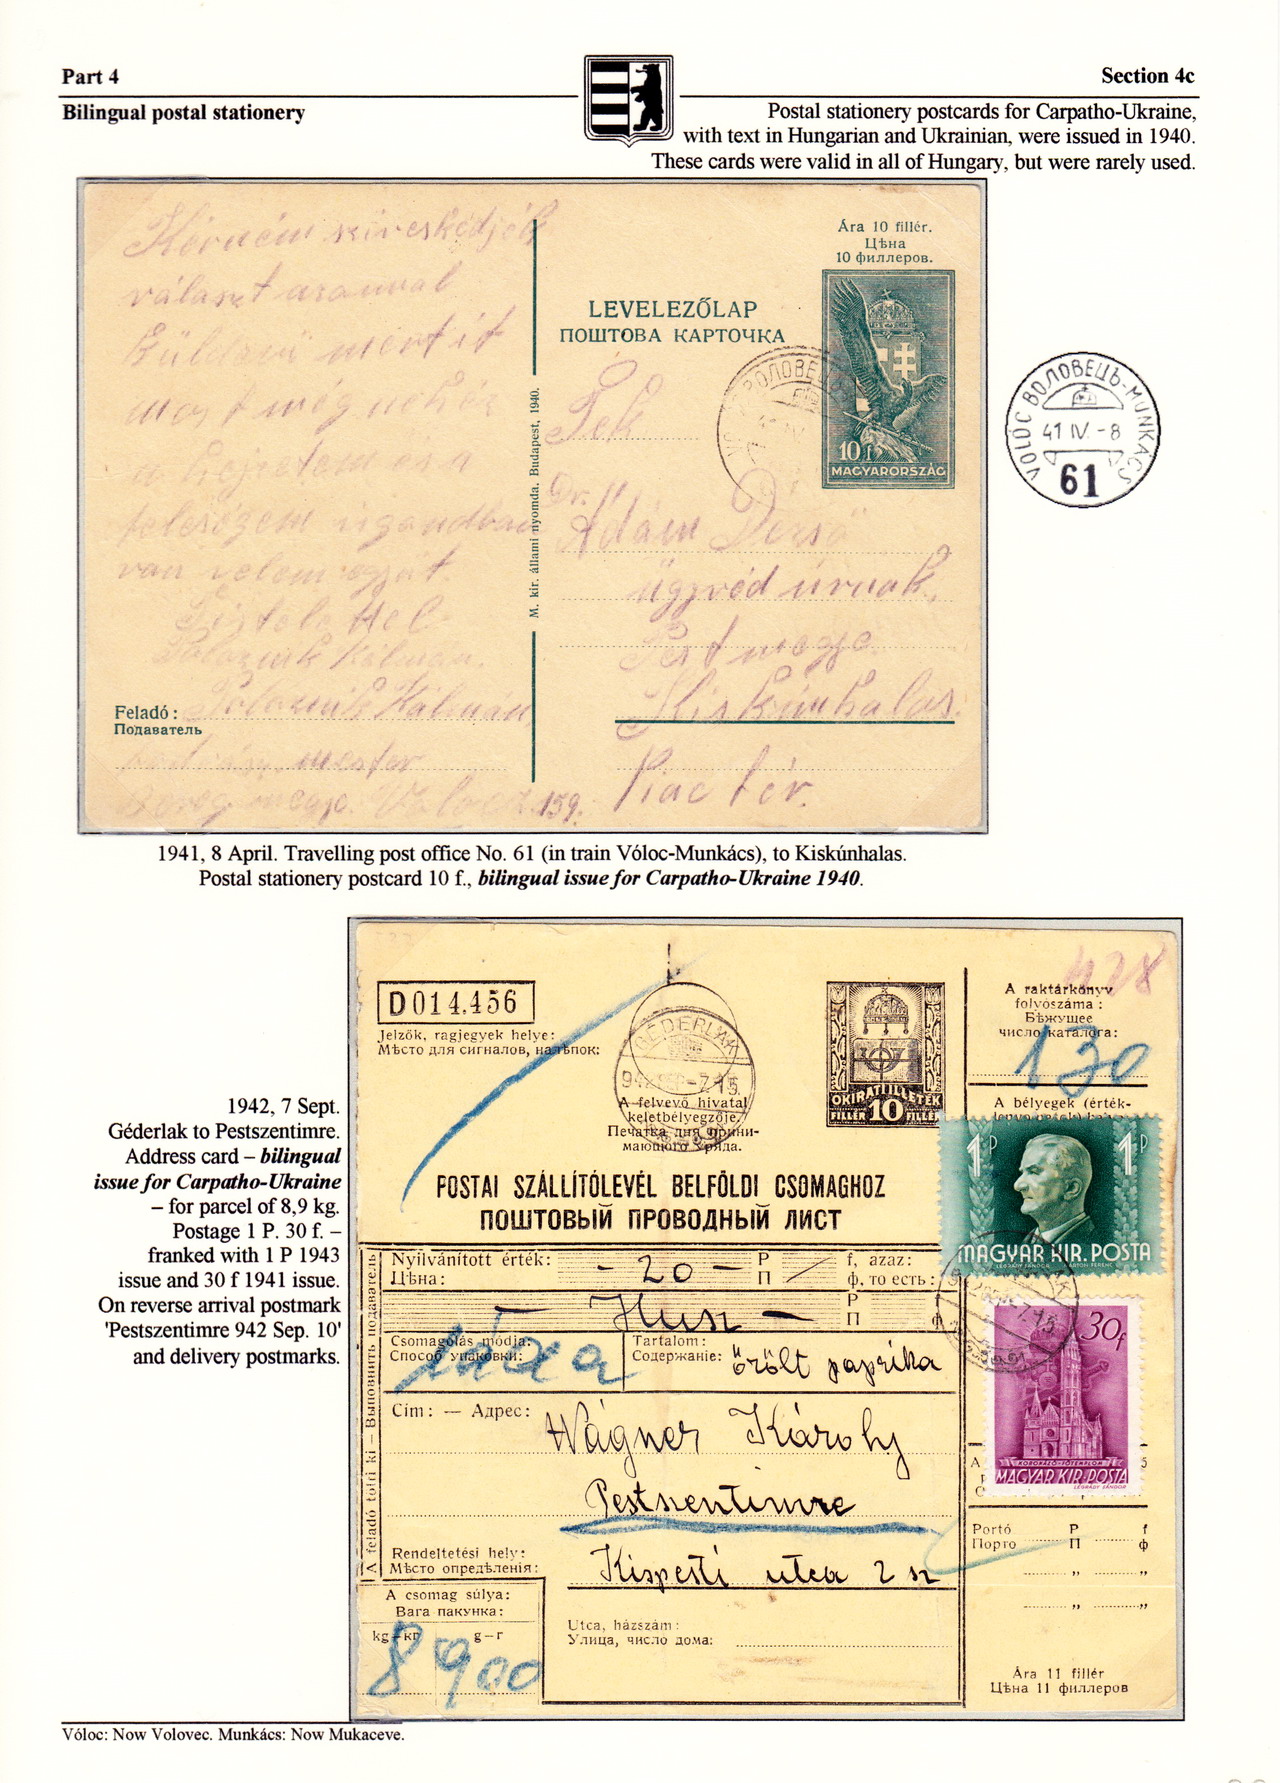 Part 4
Section 4c
Bilingual postal stationery
Postal stationery postcards for Carpatho-Ukraine,
with text in Hungarian and Ukrainian, were issued in 1940.
These cards were valid in all of Hungary, but were rarely used.
Ára 10 fillér.
Цѣна
10 филлеров.
LEVELEZŐLAP
ПОШТОВА КАРТОЧКА
10 f
MAGYARORSZÁG
választ azonnal
most még nehéz
van velem együtt.
M. kir. állami nyomda. Budapest, 1940.
Dr. Ádám Dezső
ügyvéd úrnak.
Pest megye
Kiskúnhalas.
Piac tér.
Feladó:
Подаватель
mester
159.
VOLÓC ВОЛОВЕЦЬ-MUNKÁCS
41 IV. -8
61
1941, 8 April. Travelling post office No. 61 (in train Vóloc-Munkács), to Kiskúnhalas.
Postal stationery postcard 10 f., bilingual issue for Carpatho-Ukraine 1940.
1942, 7 Sept.
Géderlak to Pestszentimre.
Address card – bilingual
issue for Carpatho-Ukraine
– for parcel of 8,9 kg.
Postage 1 P. 30 f. –
franked with 1 P 1943
issue and 30 f 1941 issue.
On reverse arrival postmark
'Pestszentimre 942 Sep. 10'
and delivery postmarks.
428
D 014,456
Jelzők, ragjegyek helye:
Мѣсто для сигналов, налѣпок:
GÉDERLAK
A felvevő hivatal
keletbélyegzője.
Печатка для прини-
мающого уряда.
OKIRATI ILLETÉK
FILLÉR 10 FILLÉR
A raktárkönyv
folyószáma:
Бѣжущее
число каталога:
130
A bélyegek (érték-
1P 1P
MAGYAR KIR. POSTA
POSTAI SZÁLLÍTÓLEVÉL BELFÖLDI CSOMAGHOZ
ПОШТОВЫЙ ПРОВОДНЫЙ ЛИСТ
Nyilvánított érték: – 20 – P f, azaz:
Цѣна: П ф, то есть:
– Husz – P f
П ф
Csomagolás módja:
Способ упаковки:
Tartalom:
Содержаніе: őrölt paprika
30f
KORONÁZÓ-FŐTEMPLOM
MAGYAR KIR. POSTA
LÉGRÁDY SÁNDOR
Cím: — Адрес: Wágner Károly
Pestszentimre
Rendeltetési hely:
Мѣсто опредѣленія: Kispesti utca 2 sz
A feladó tölti ki — Выповнить подаватель
Portó P f
Порто П ф
A csomag súlya:
Вага пакунка:
kg–кг g–г
8 900
Utca, házszám:
Улица, число дома:
Ára 11 fillér
Цѣна 11 филлеров
Vóloc: Now Volovec. Munkács: Now Mukaceve.